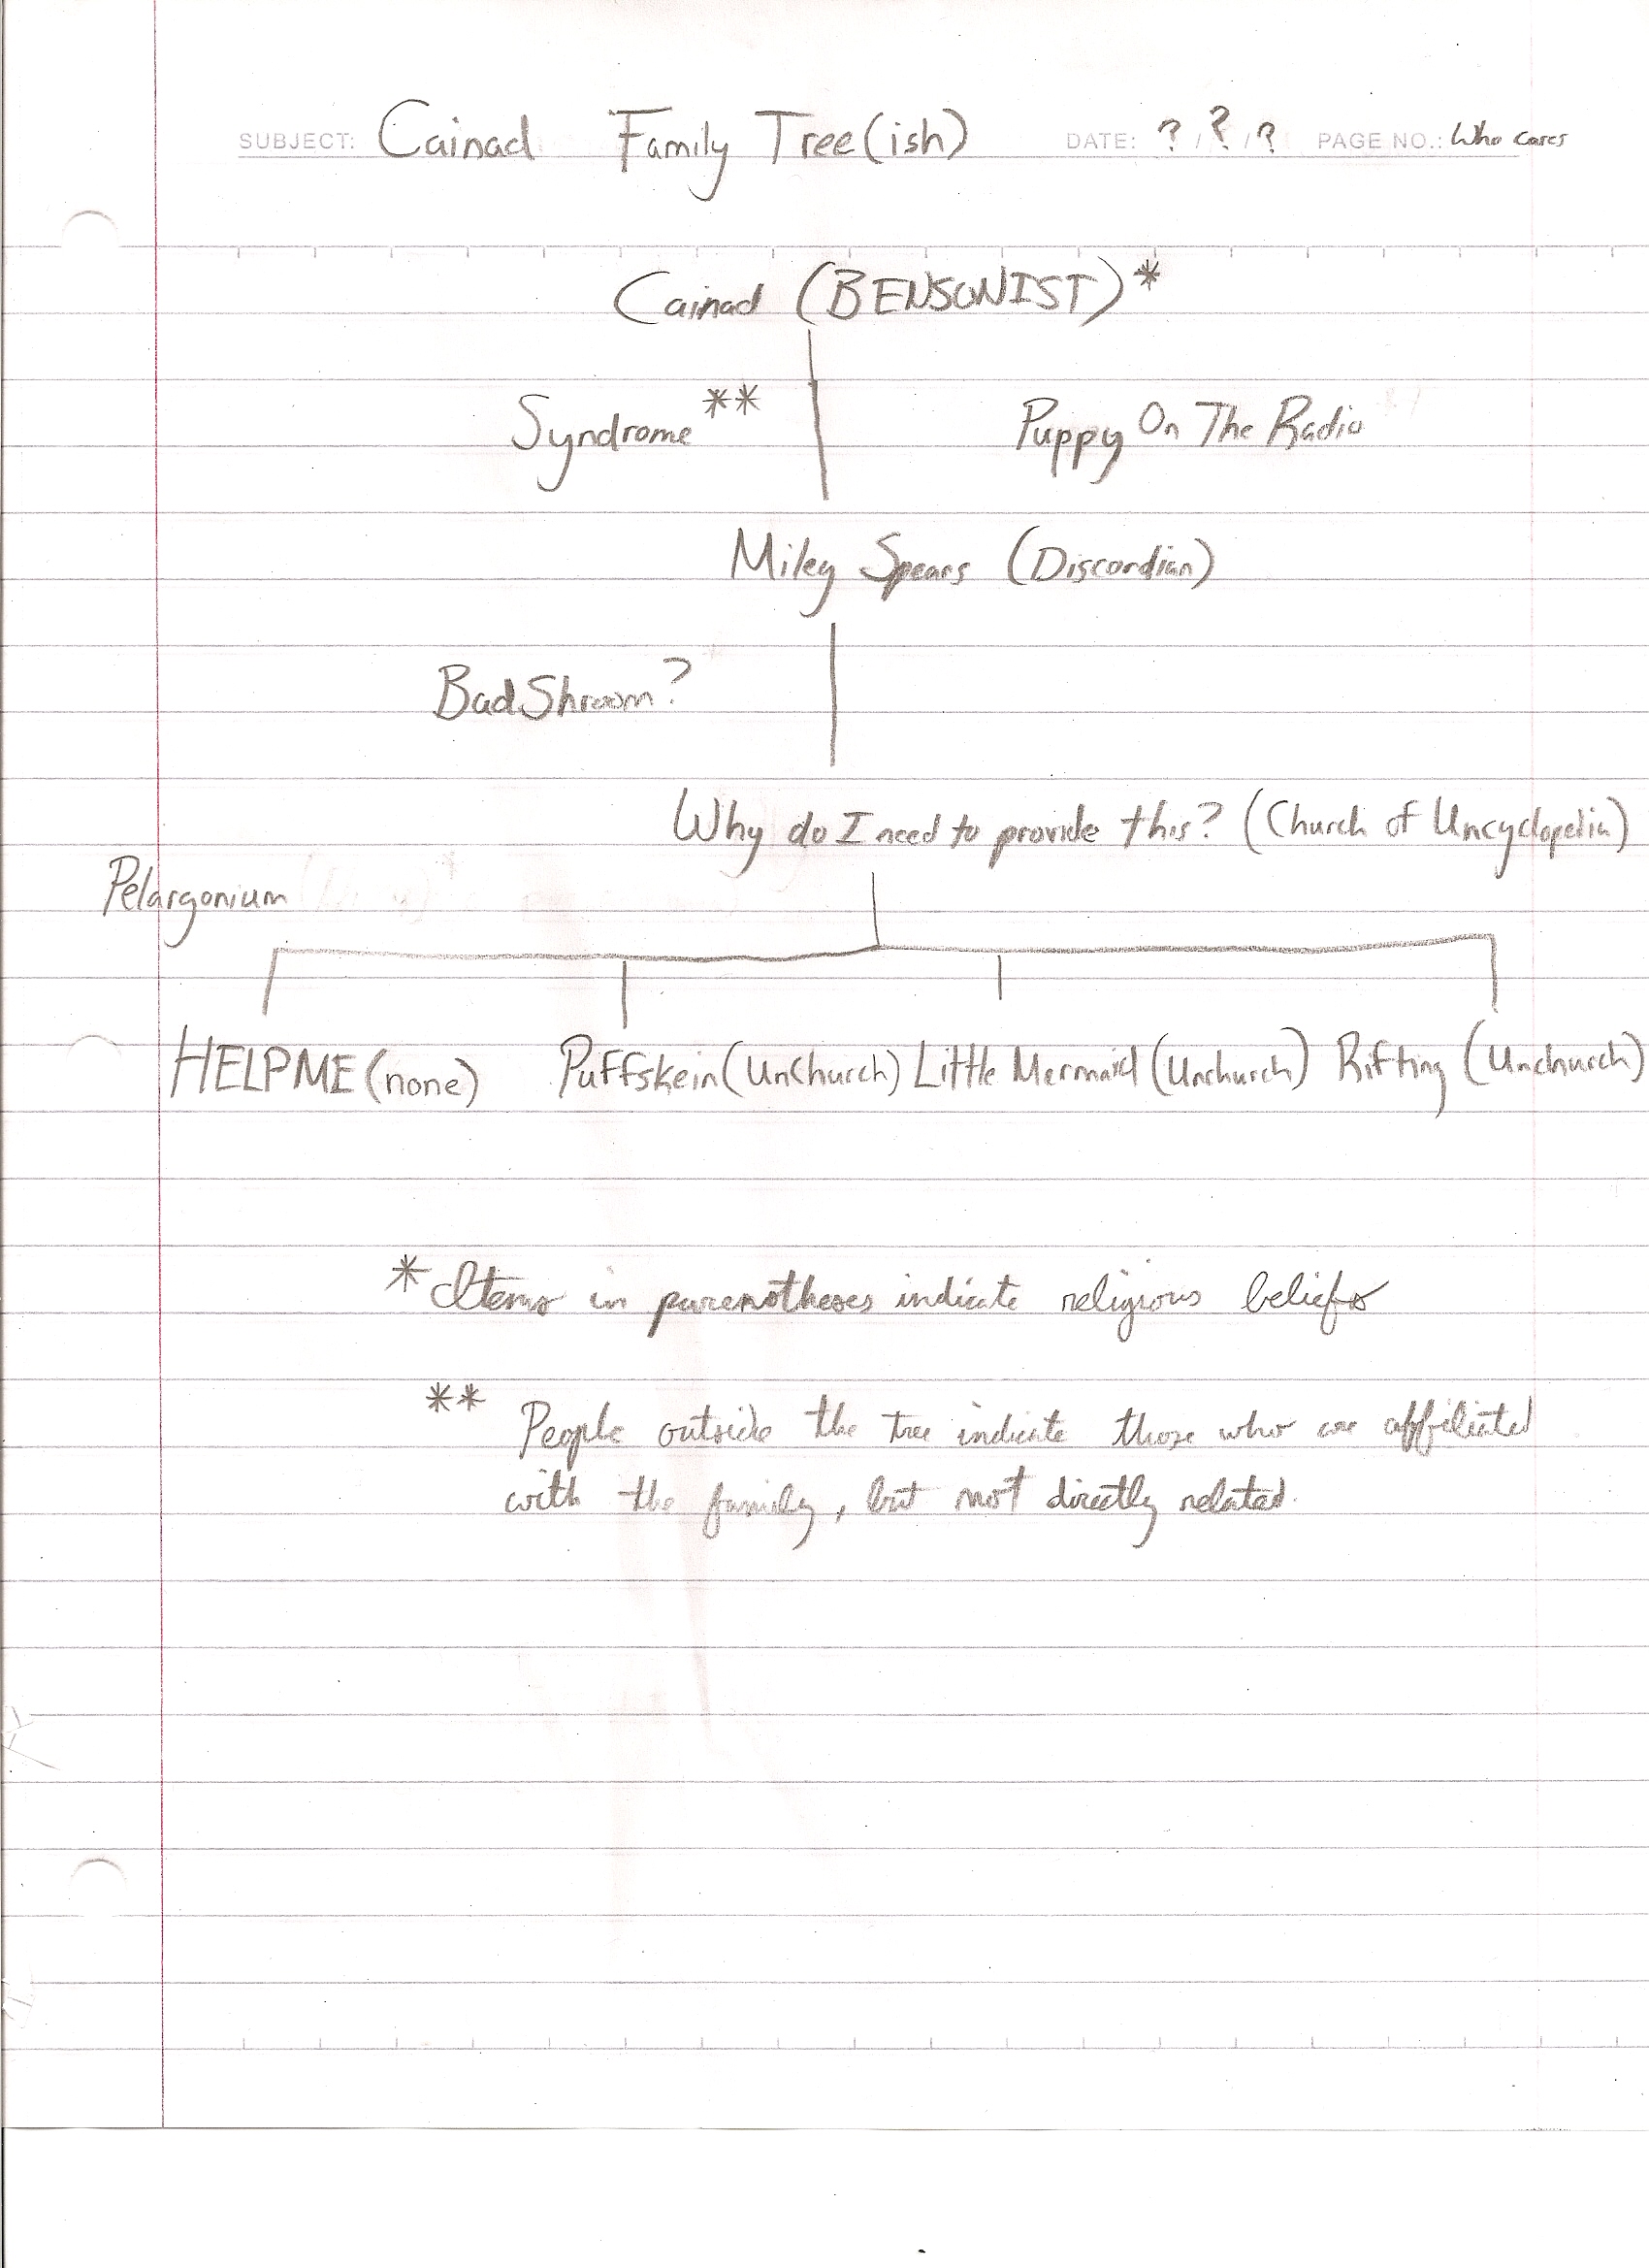 SUBJECT: Cainad Family Tree(ish) DATE: ? / ? / ? PAGE NO.: Who cares
Cainad (BENSONIST)*
Syndrome** Puppy On The Radio
Miley Spears (Discordian)
BadShroom?
Why do I need to provide this? (Church of Uncyclopedia)
Pelargonium
HELPME (none) Puffskein (UnChurch) Little Mermaid (Unchurch) Rifting (Unchurch)
* Items in parenotheses indicate religious beliefs
** People outside the tree indicate those who are affiliated
with the family, but not directly related.